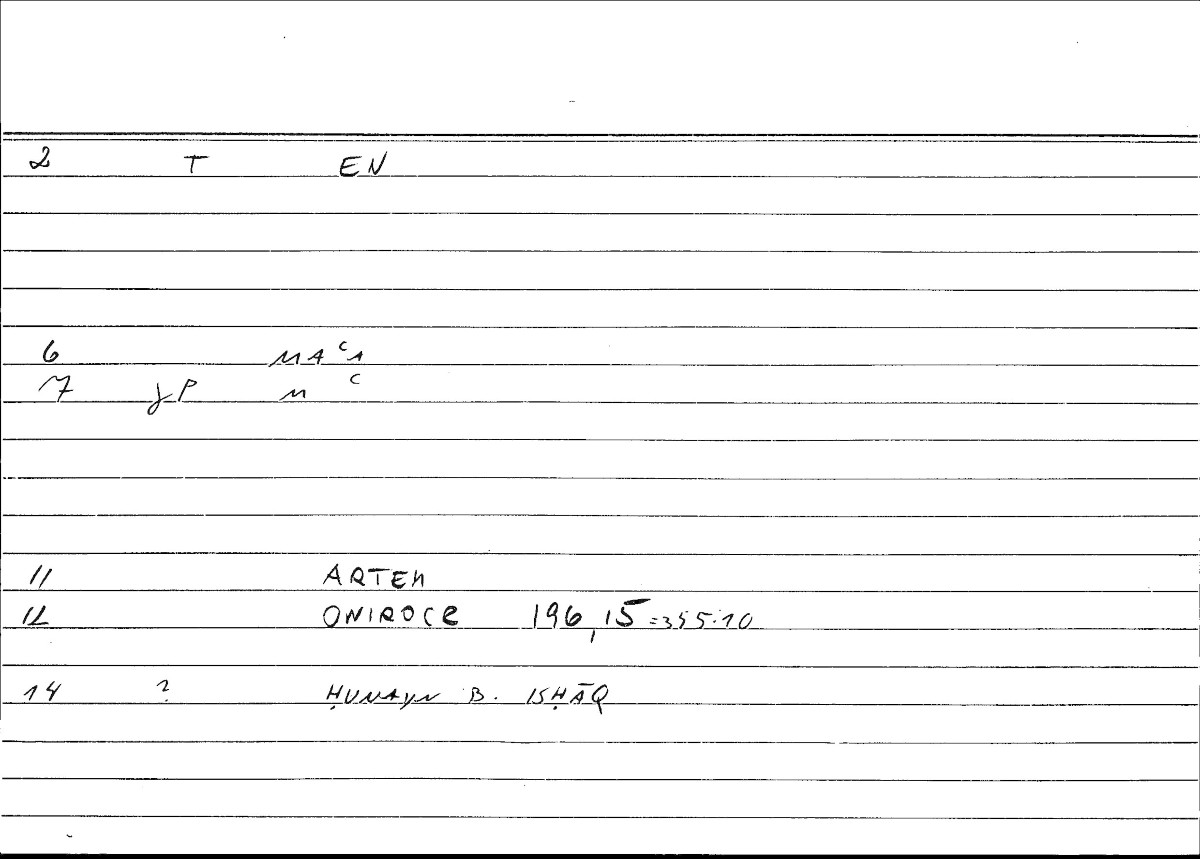 2 T EN
6 MAᶜA
7 JP Mᶜ
11 ARTEM
12 ONIROCR 196,15 =355:10
14 ? ḤUNAYN B. ISḤĀQ